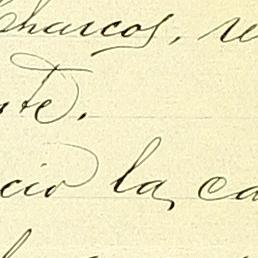 Charcos, re
te.
cio la ca